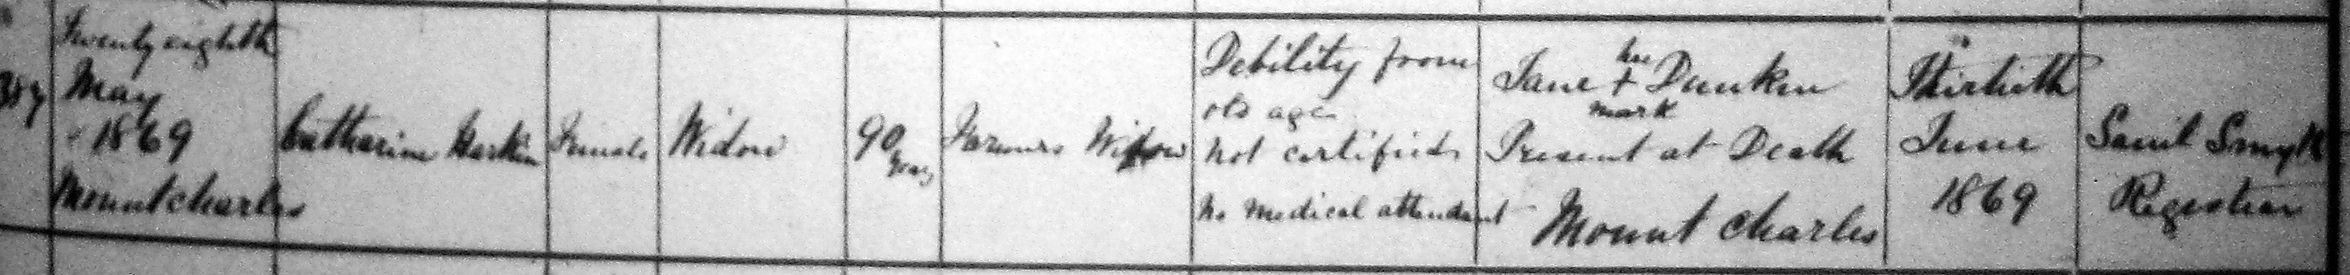 Twenty eighth
May
1869
Mountcharles
Catharine Harkin
Female
Widow
90
years
Farmers Widow
Debility from
old age
not certified
no medical attendant
her
Jane + Dunkin
mark
Present at Death
Mount Charles
Thirtieth
June
1869
Saml Smyth
Registrar